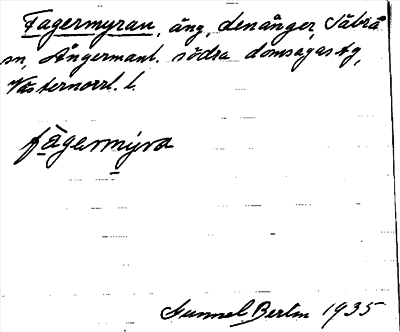 Fagermyran, äng, Lenånger, Säbrå
sn, Ångermanl. södra domsagas tg,
Västernorrl. l.
fagermýra
Gunnel Berlin 1935